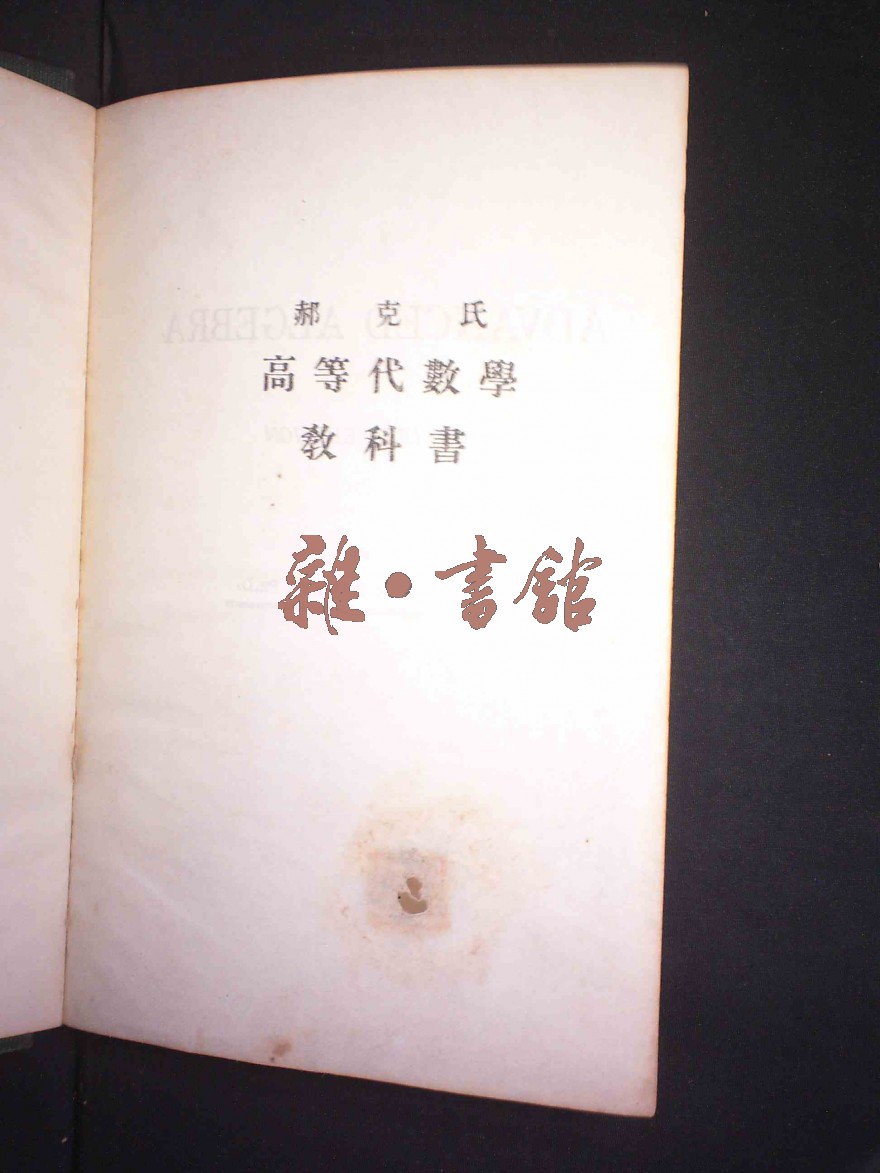 郝克氏
高等代數學
教科書
雜·書館
ADVANCED ALGEBRA